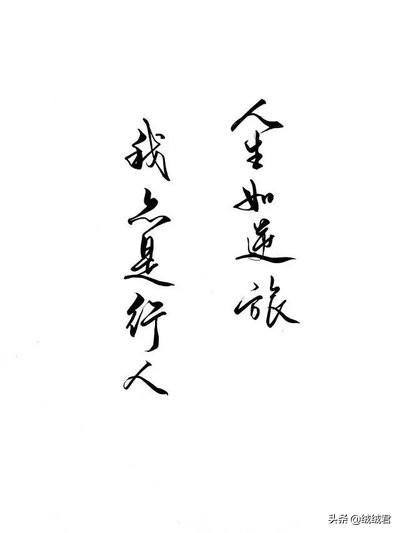 人生如逆旅
我亦是行人
头条 @绒绒君